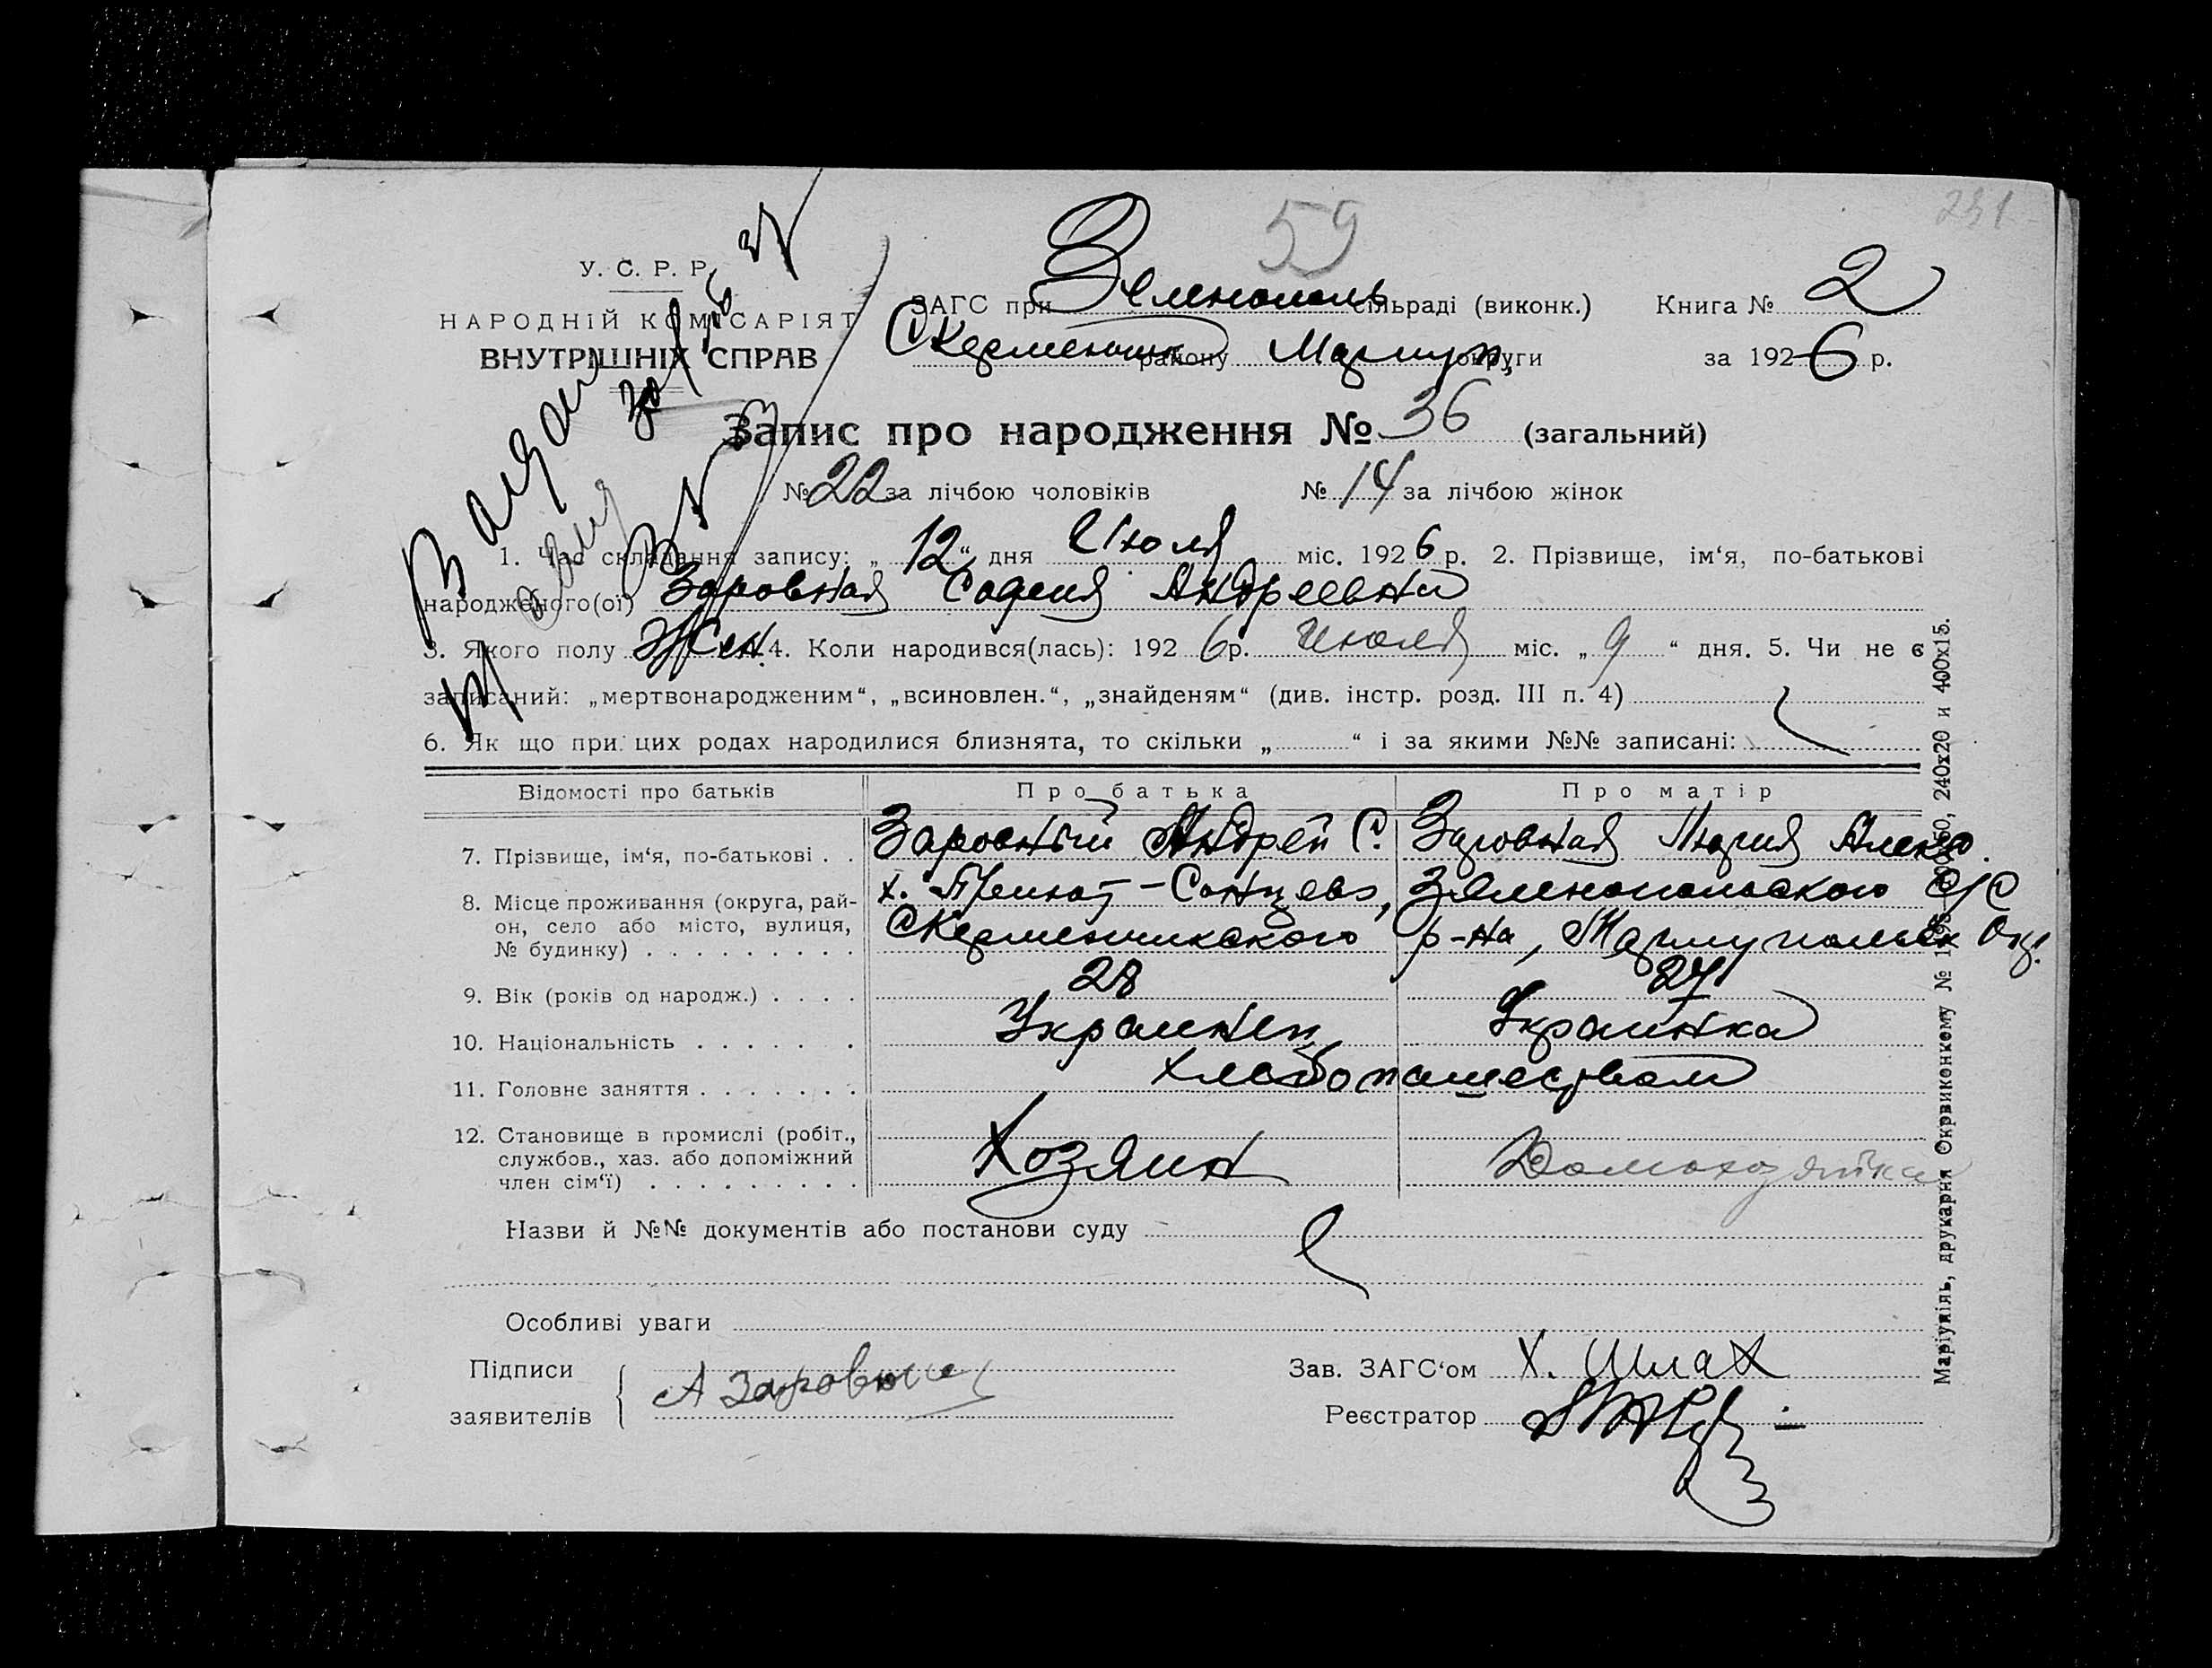 59
231
У. С. Р. Р.
НАРОДНІЙ КОМІСАРІЯТ
ВНУТРІШНІХ СПРАВ
ЗАГС при Зеленополь сільраді (виконк.) Книга № 2
району Мариуп. округи за 1926 р.
Запис про народження № 36 (загальний)
№ 22 за лічбою чоловіків № 14 за лічбою жінок
1. Час складання запису: „12“ дня Июля міс. 1926 р. 2. Прізвище, ім‘я, по-батькові
народженого(ої) Заровная София Андреевна
3. Якого полу Жен. 4. Коли народився(лась): 1926 р. Июля міс. „9“ дня. 5. Чи не є
записаний: „мертвонародженим“, „всиновлен.“, „знайденям“ (див. інстр. розд. III п. 4)
6. Як що при цих родах народилися близнята, то скільки „ “ і за якими №№ записані:
Відомості про батьків Про батька Про матір
7. Прізвище, ім‘я, по-батькові . . Заровный Андрей С. Заровная Мария Алекс.
8. Місце проживання (округа, рай-
он, село або місто, вулиця,
№ будинку) . . . . . . . . .
х. Приют-Сонцево, Зеленопольского С/С
р-на, Мариупольск Окр.
9. Вік (років од народж.) . . . . 28 27
10. Національність . . . . . . Украинец Украинка
11. Головне заняття . . . . . . . Хлебопашеством
12. Становище в промислі (робіт.,
службов., хаз. або допоміжний
член сім‘ї) . . . . . . . . .
Хозяин Домохозяйка
Назви й №№ документів або постанови суду
Особливі уваги
Підписи
заявителів
А Заровный
Зав. ЗАГС‘ом Х. Шпах
Реєстратор
Маріупіль, друкарня Окрвиконкому № 240х20 и 400х15.